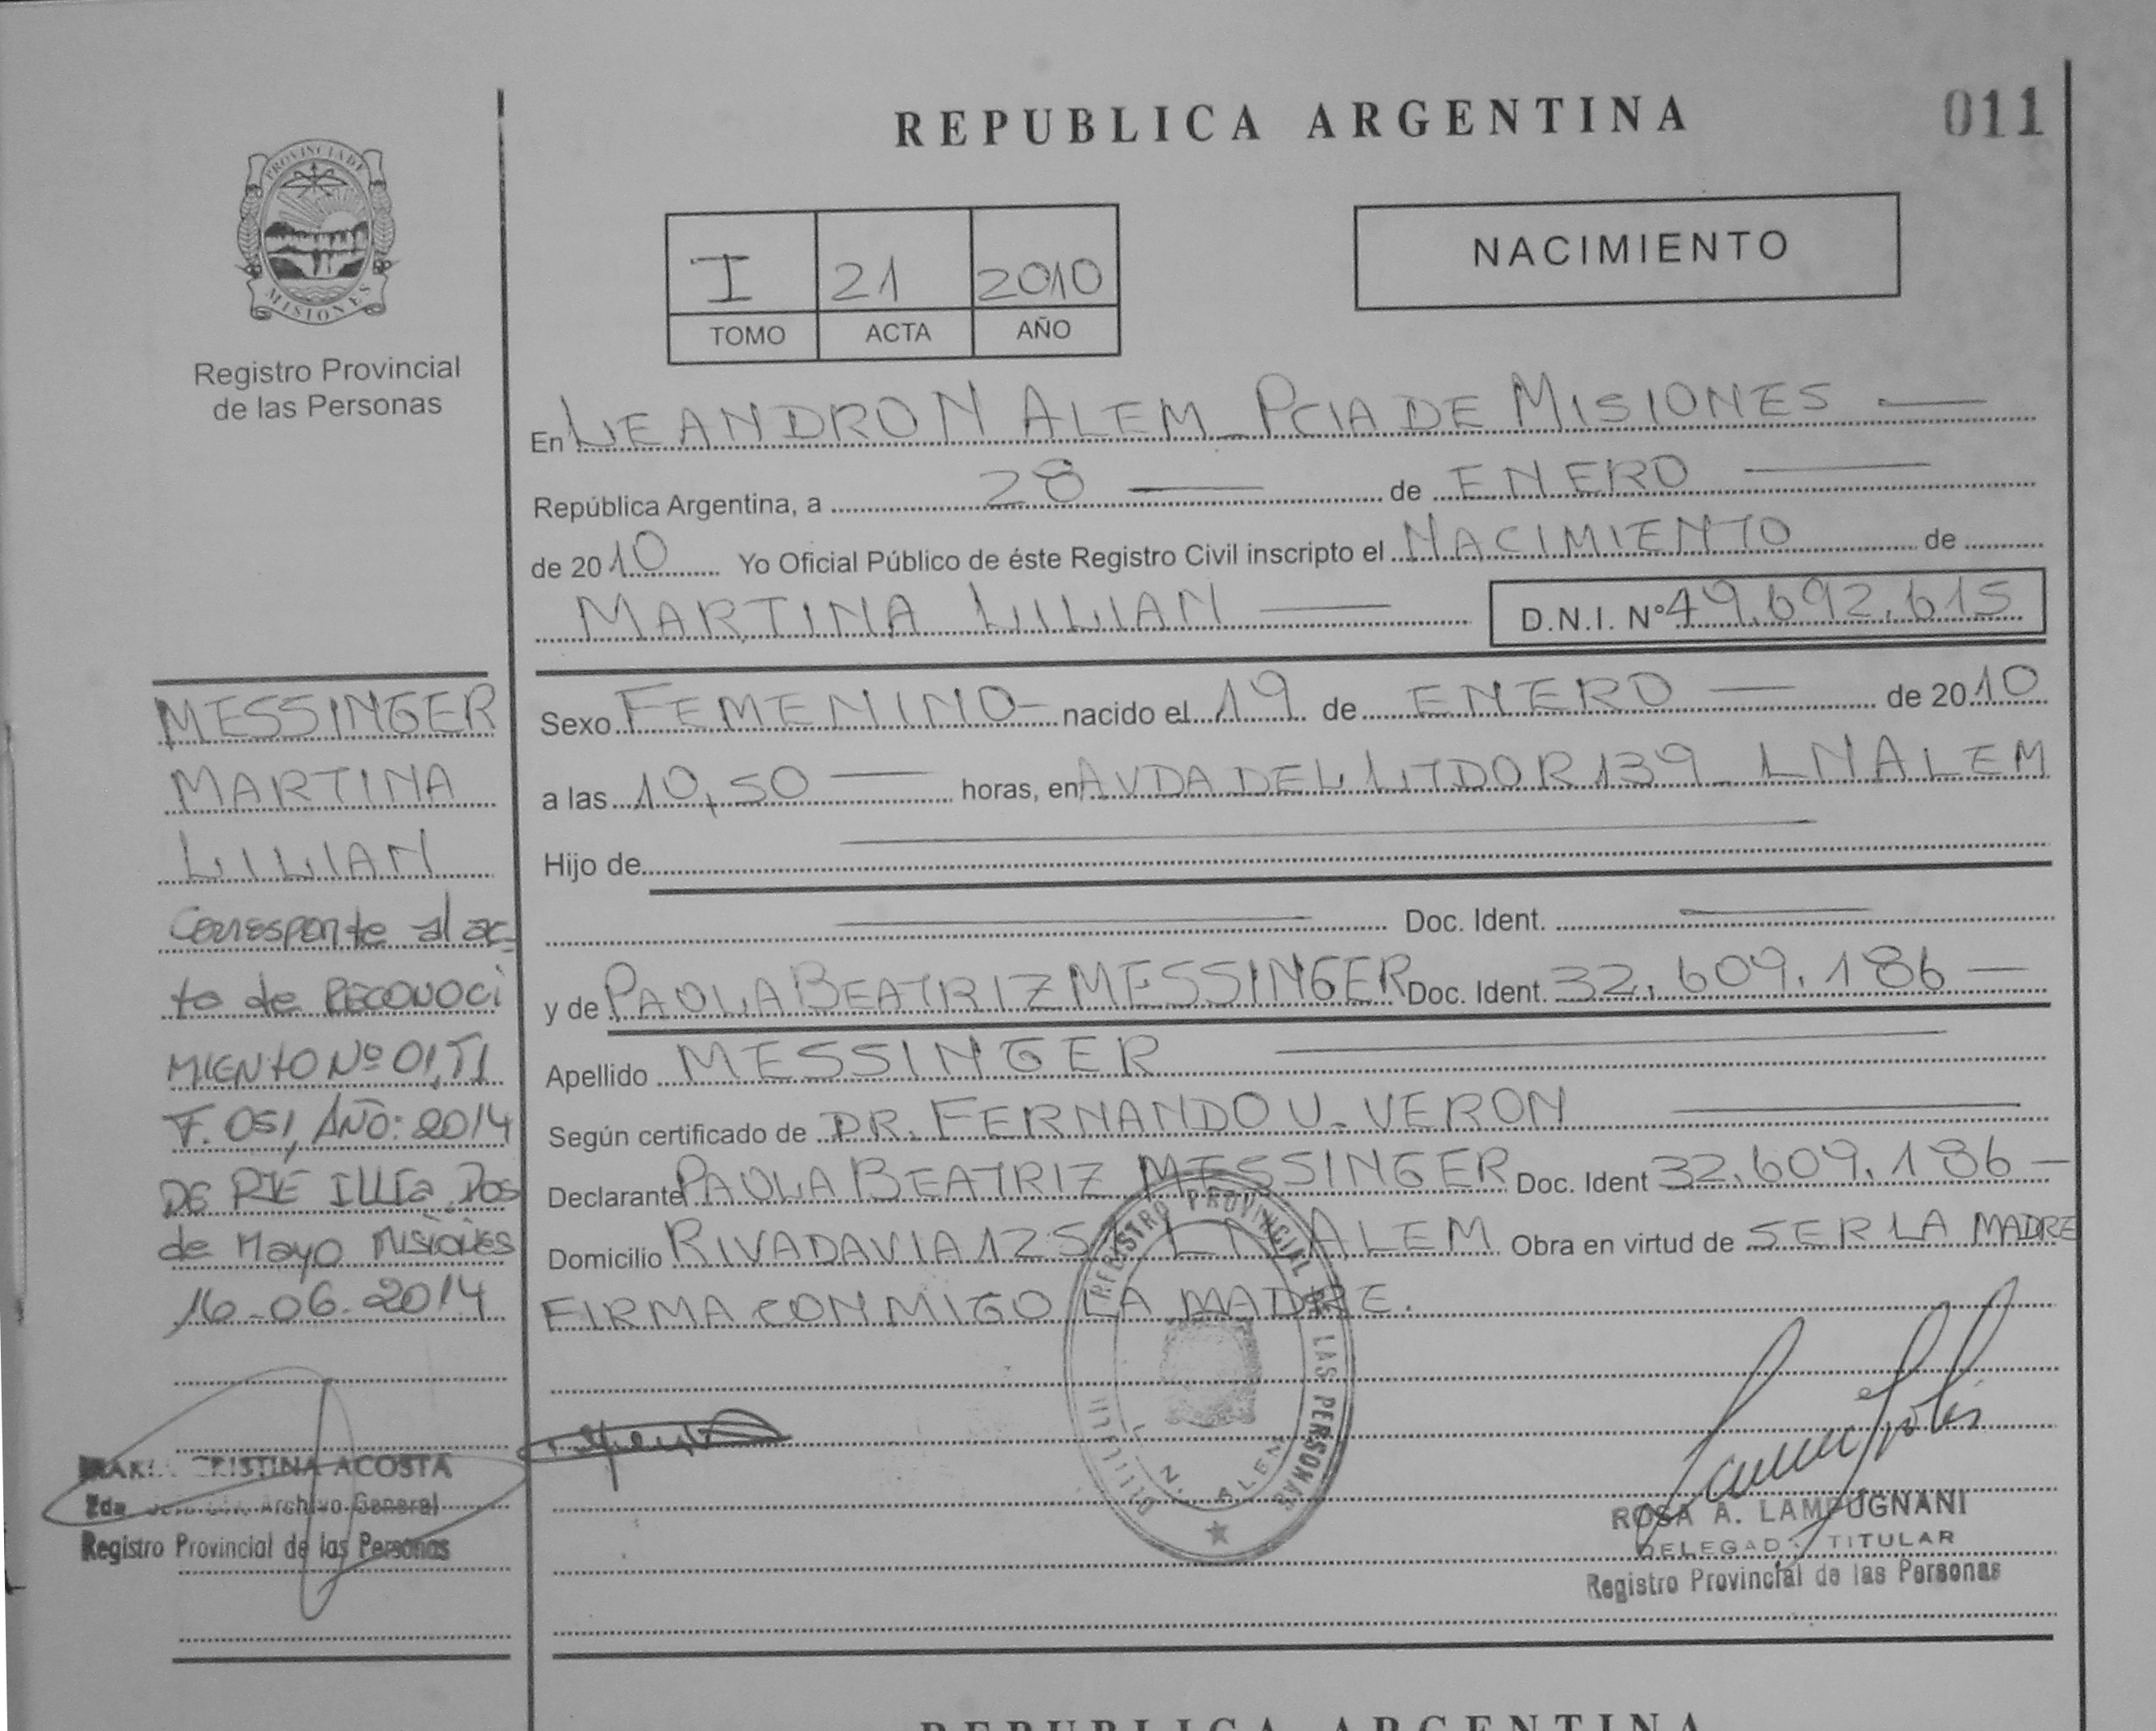 REPUBLICA ARGENTINA
011
PROVINCIA DE
MISIONES
Registro Provincial
de las Personas
NACIMIENTO
I 21 2010
TOMO ACTA AÑO
En LEANDRO N ALEM - PCIA DE MISIONES —
República Argentina, a 28 — de ENERO —
de 2010 Yo Oficial Público de éste Registro Civil inscripto el NACIMIENTO de
MARTINA LILIAN — D.N.I. Nº 49.692.615
Sexo FEMENINO - nacido el 19 de ENERO — de 2010
a las 10,50 — horas, en AVDA DEL LITDOR 139 - L N ALEM
Hijo de —
— Doc. Ident. —
y de PAOLA BEATRIZ MESSINGER Doc. Ident. 32.609.186 —
Apellido MESSINGER —
Según certificado de DR. FERNANDO U. VERON —
Declarante PAOLA BEATRIZ MESSINGER Doc. Ident 32.609.186 —
Domicilio RIVADAVIA 125 L N ALEM Obra en virtud de SER LA MADRE
FIRMA CONMIGO LA MADRE.
MESSINGER
MARTINA
LILIAN
Corresponte al ac-
to de RECONOCI
MIENTO Nº 01, T1
F. 051, AÑO: 2014
DE PTE ILLIA, Dos
de Mayo Misiones
16-06-2014
CRISTINA ACOSTA
Archivo General
Registro Provincial de las Personas
REGISTRO PROVINCIAL DE LAS PERSONAS
L. N. ALEM
ROSA A. LAMPUGNANI
DELEGADA TITULAR
Registro Provincial de las Personas
REPUBLICA ARGENTINA